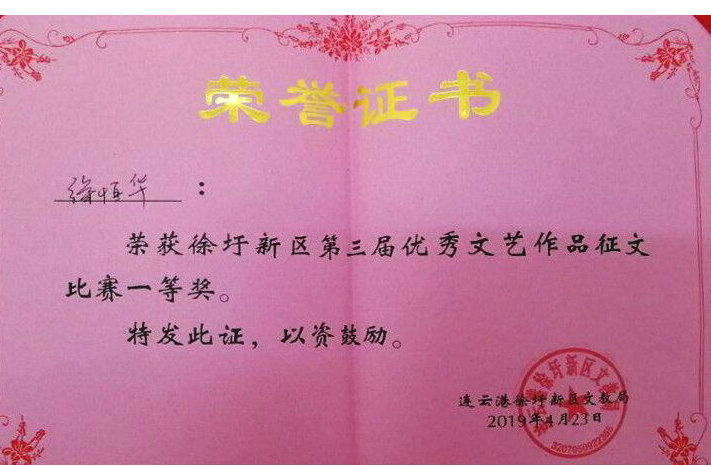 荣誉证书
徐恒华：
荣获徐圩新区第三届优秀文艺作品征文
比赛一等奖。
特发此证，以资鼓励。
连云港徐圩新区文教局
2019年4月23日